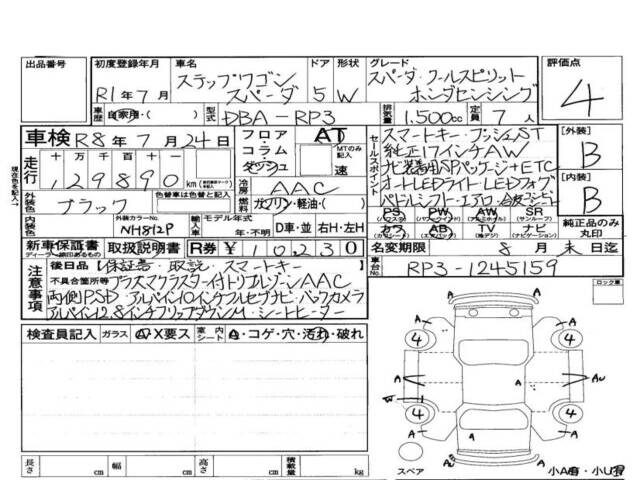 出品番号 初度登録年月 車名 ドア 形状 グレード 評価点
R1年7月 ステップワゴン スパーダ 5 W スパーダ・クールスピリット ホンダセンシング 4
車歴 自家用・( ) 型式 DBA-RP3 排気量 1,500cc 定員 7人
車検 R8年7月24日 フロア コラム ダッシュ AT MTのみ記入 速
セールスポイント スマートキー・プッシュST
純正17インチAW
ナビ装着用SPパッケージ+ETC
オートLEDライト・LEDフォグ
パドルシフト・エアロ・
[外装] B
[内装] B
現在色を記入→
走行 十万千百十一 129890km
冷房 AAC
外装色 ブラック 色替車は色替と記入 燃料 ガソリン・軽油・( )
PS (パワステ) PW (パワーウインド) AW (アルミホイル) SR (サンルーフ)
カワ (カワシート) AB (エアバック) TV (除デジ) ナビ (ナビゲーション)
純正品のみ丸印
内装色 外装カラーNo. NH812P 輸入車 モデル年式 年・不明 D車・並 右H・左H
新車保証書 ディーラー捺印あるもの 取扱説明書 R券 ¥10230 名変期限 8月末日迄
注意事項 不具合箇所等
後日品【保証書・取説・スマートキー】
プラズマクラスター付トリプルゾーンAAC
両側PSD・アルパイン10インチフルセグナビ・バックカメラ
アルパイン12.8インチフリップダウンM・シートヒーター
車台No. RP3-1245159
ロック車
検査員記入 ガラス A・X要ス 室内シート A・コゲ・穴・汚れ・破れ
A A
4 4
A A
A A A AU
W
4 4
A A
A A
長さ cm 幅 cm 高さ cm 積載量 kg
スペア 小A有・小U有